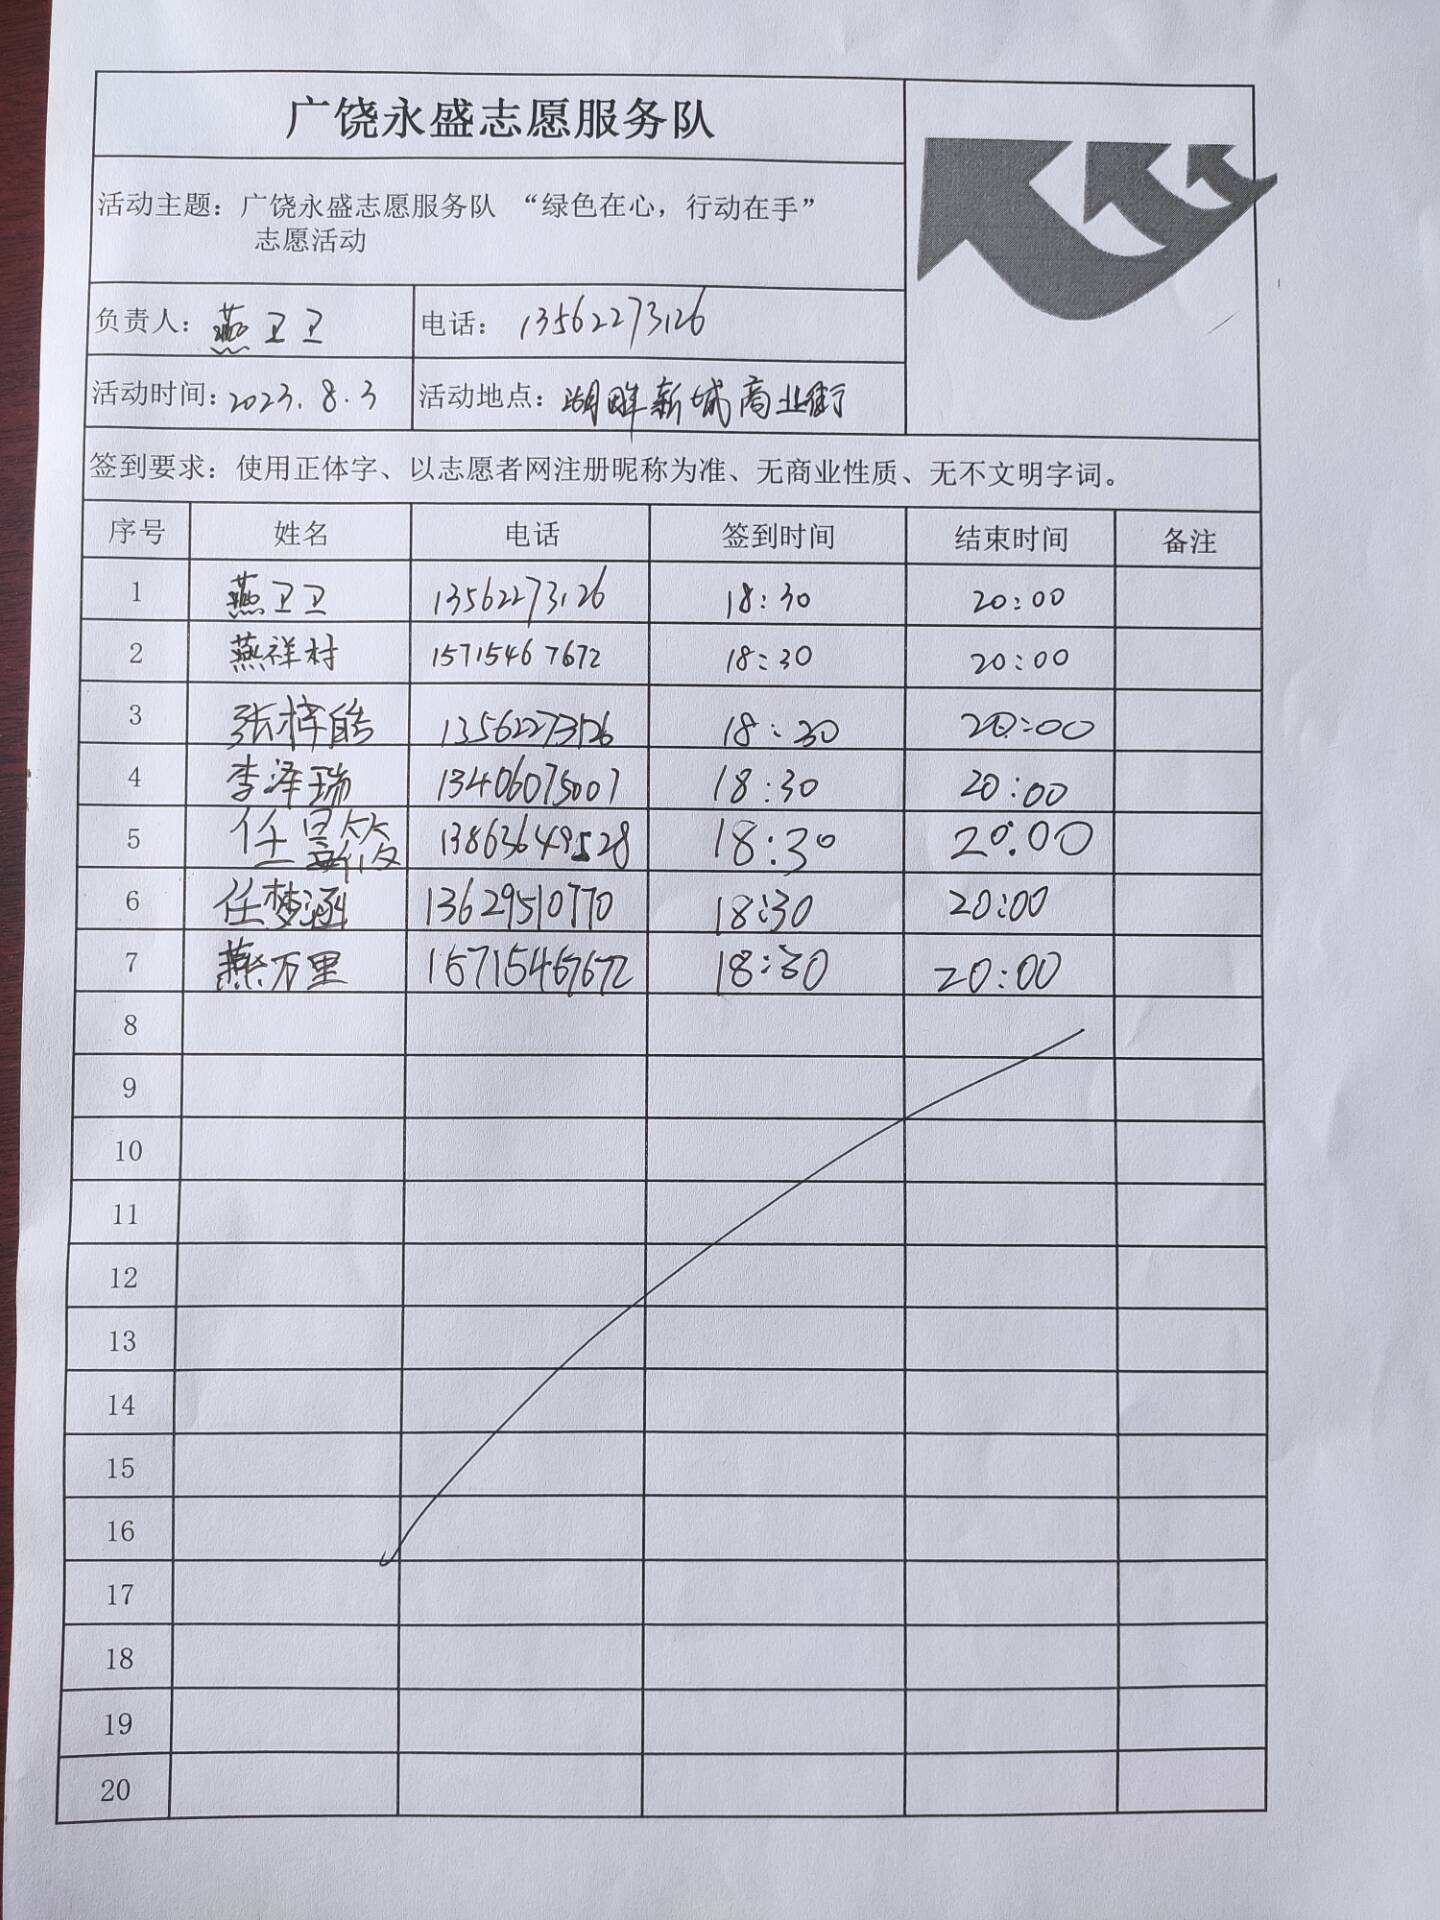 广饶永盛志愿服务队
活动主题：广饶永盛志愿服务队 “绿色在心，行动在手”
志愿活动
负责人：燕卫卫 电话：13562273126
活动时间：2023.8.3 活动地点：湖畔新城商业街
签到要求：使用正体字、以志愿者网注册昵称为准、无商业性质、无不文明字词。
序号 姓名 电话 签到时间 结束时间 备注
1 燕卫卫 13562273126 18:30 20:00
2 燕祥村 15715467672 18:30 20:00
3 张梓皓 13562273126 18:30 20:00
4 李泽瑞 13406075007 18:30 20:00
5 任 13863649528 18:30 20:00
6 任梦涵 13629510770 18:30 20:00
7 燕万里 15715467672 18:30 20:00
8
9
10
11
12
13
14
15
16
17
18
19
20